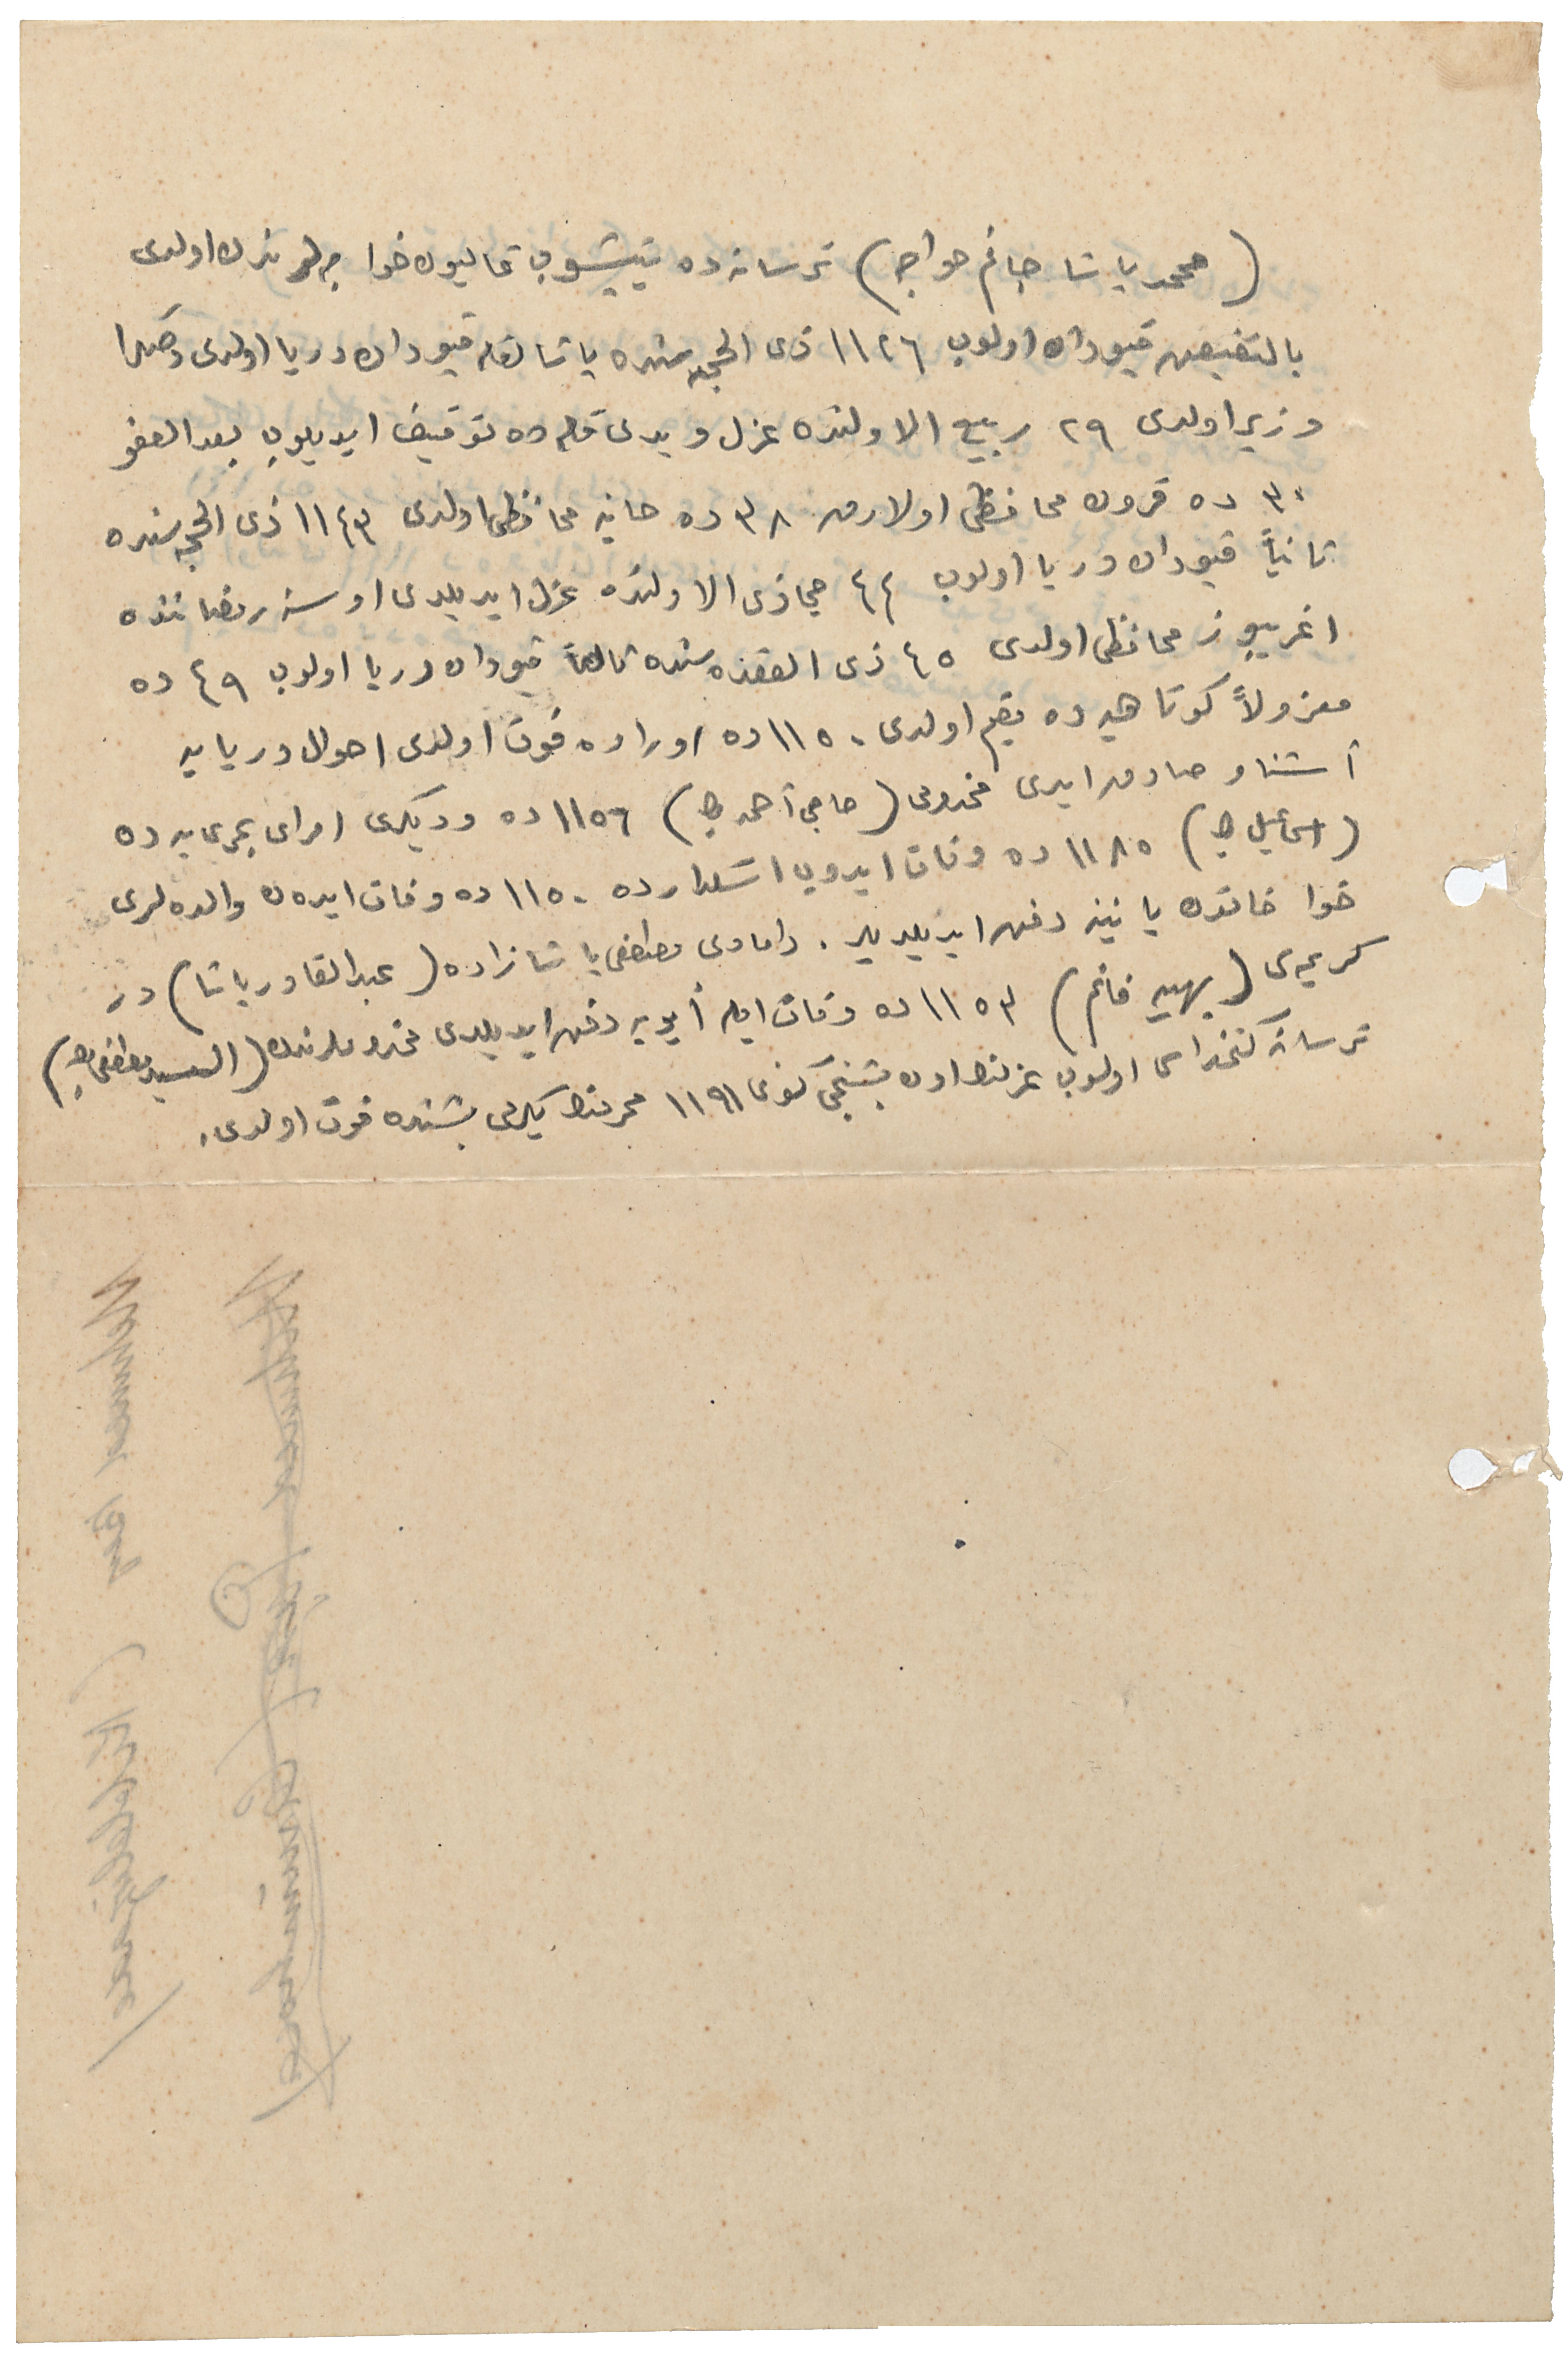 (محمد پاشا جانم خواجه) ترسانه‌ده يتيشوب قاليون خواجه لرندن اولدى
بالتفيض قپودان اولوب ١١٢٦ ذى الحجه سنده پاشالقله قپودان دريا اولدى وصكرا
وزير اولدى ٢٩ ربيع الاولنده عزل ويدى قله ده توقيف ايديلوب بعد العفو
٣٠ ده قرون محافظى اولارق ٣٨ ده حانيه محافظى اولدى ١١٤٣ ذى الحجه سنده
ثانياً قپودان دريا اولوب ٤٤ جماذى الاولنده عزل ايديلدى او سنه رمضاننده
اغريبوز محافظى اولدى ٤٥ ذى القعده سنده ثالثاً قپودان دريا اولوب ٤٩ ده
معزولاً كوتاهيه ده مقيم اولدى ١١٥٠ ده اوراده فوت اولدى احوال دريايه
آشنا و صادق ايدى مخدومى (حاجى احمد بك) ١١٥٦ ده وديكرى امراى بحريه ده
(اسماعيل بك) ١١٨٥ ده وفات ايدوب اسكدارده ١١٥٠ ده وفات ايدن والده لرى
حوا خاتون يانينه دفن ايديلديلر . دامادى مصطفى پاشا زاده (عبدالقادر پاشا) در
كريمه‌سى (بهيه خانم) ١١٥٣ ده وفات ايله ايوبه دفن ايديلدى مخدوملرندن (السيد مصطفى بك)
ترسانه كتخداسى اولوب عزلندن اون بشنجى كونى ١١٩١ محرمنك يكرمى بشنده فوت اولدى.